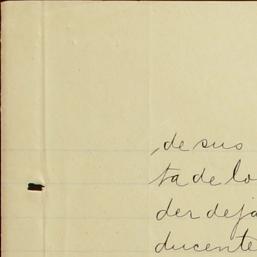 , de sus
ta de lo
der deja
ducente